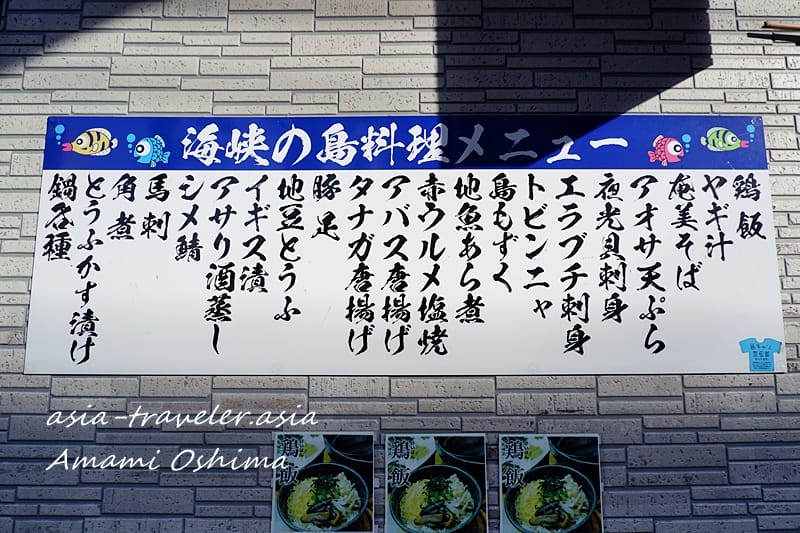 海峡の島料理メニュー
鶏飯
ヤギ汁
奄美そば
アオサ天ぷら
夜光貝刺身
エラブチ刺身
トビンニャ
島もずく
地魚あら煮
赤ウルメ塩焼
アバス唐揚げ
タナガ唐揚げ
豚足
地豆とうふ
イギス漬
アサリ酒蒸し
シメ鯖
馬刺
角煮
とうふかす漬け
鍋各種
asia-traveler.asia
Amami Oshima
鶏飯
鶏飯
鶏飯